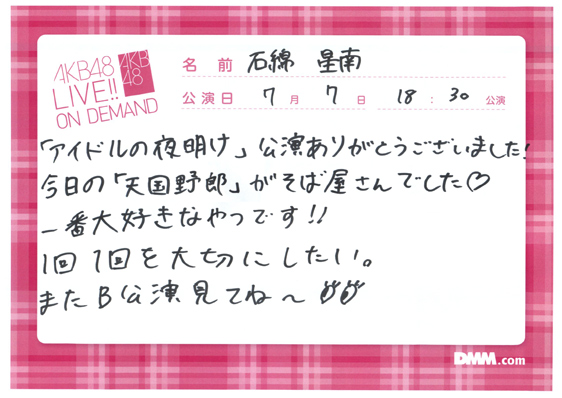 AKB48
LIVE!!
ON DEMAND
AKB
48
名 前 石綿 星南
公演日 7月 7日 18:30 公演
「アイドルの夜明け」公演ありがとうございました!
今日の「天国野郎」がそば屋さんでした♡
一番大好きなやつです!!
1回1回を大切にしたい。
またB公演見てね〜
DMM.com